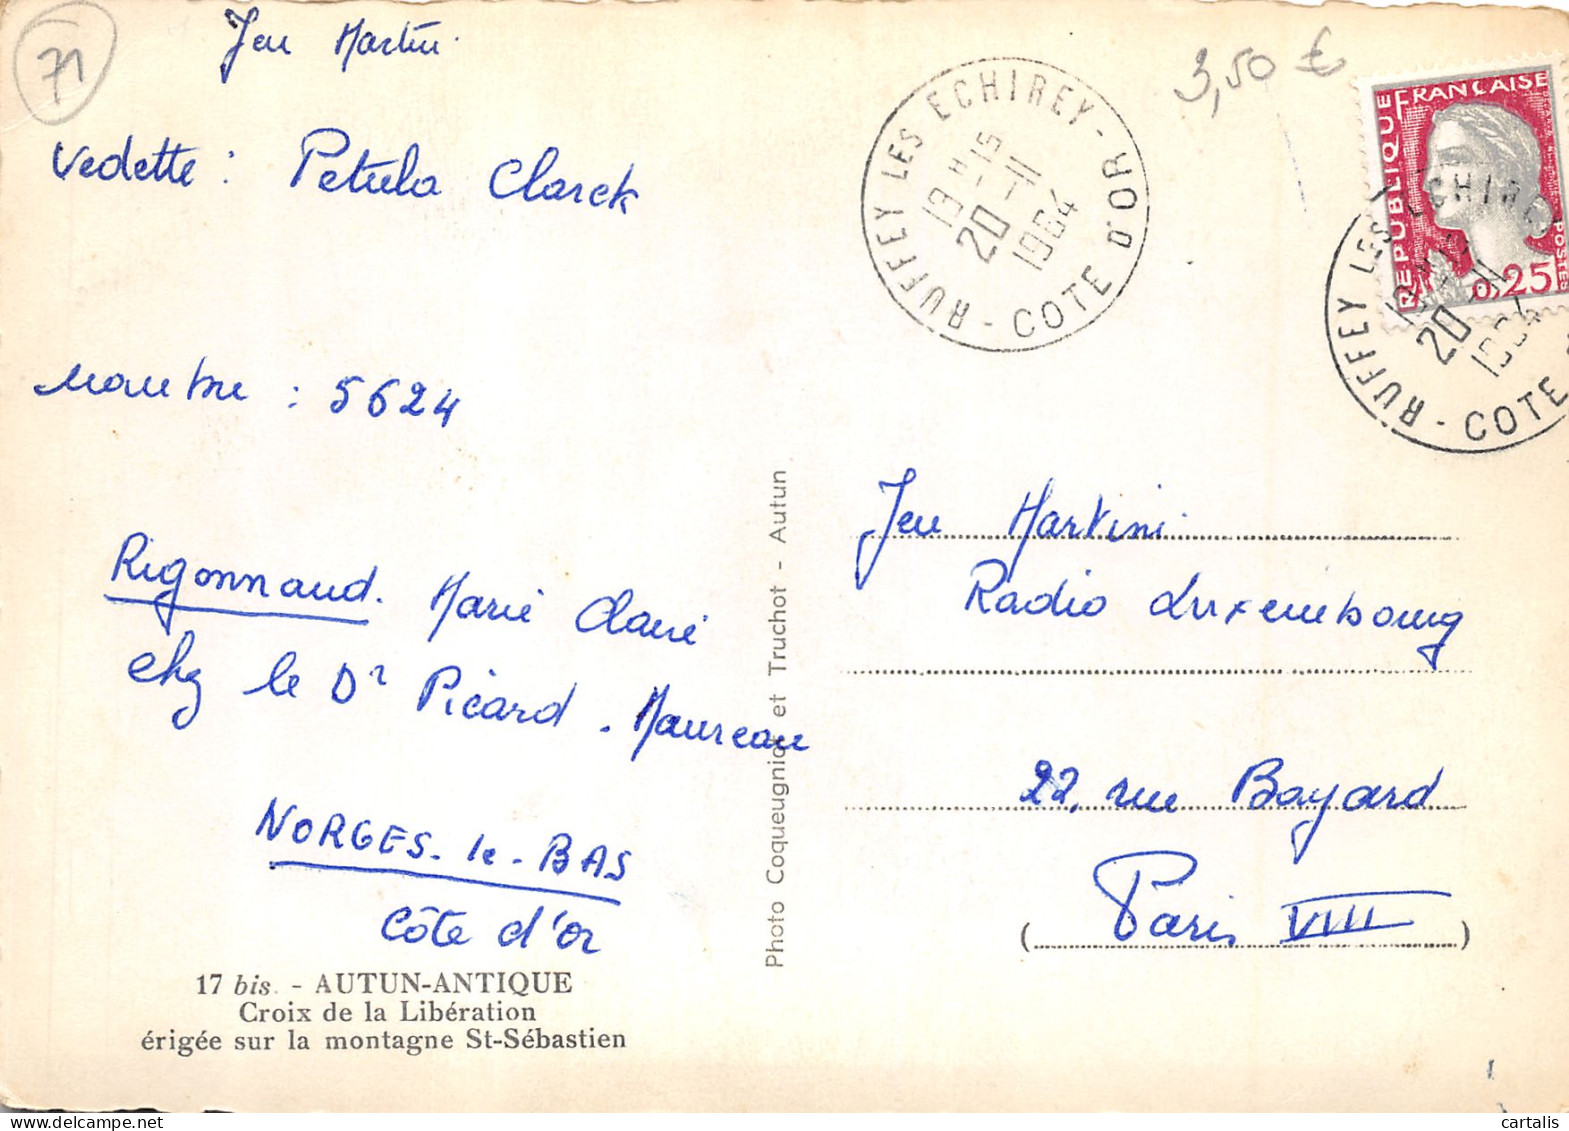 71
Jeu Martini
Vedette : Petula Clarck
nombre : 5624
Rigonnaud. Marie Claire
chez le Dr Picard. Maureau
NORGES-le-BAS
Côte d'or
17 bis. - AUTUN-ANTIQUE
Croix de la Libération
érigée sur la montagne St-Sébastien
Photo Coqueugniot et Truchot - Autun
RUFFEY LES ECHIREY - COTE D'OR
19 H 15
20 - 11
1964
3,50 €
REPUBLIQUE FRANÇAISE
POSTES
0,25
RUFFEY LES ECHIREY - COTE
20 - 11
Jeu Martini
Radio Luxembourg
22, rue Bayard
( Paris VIII )
cartalis